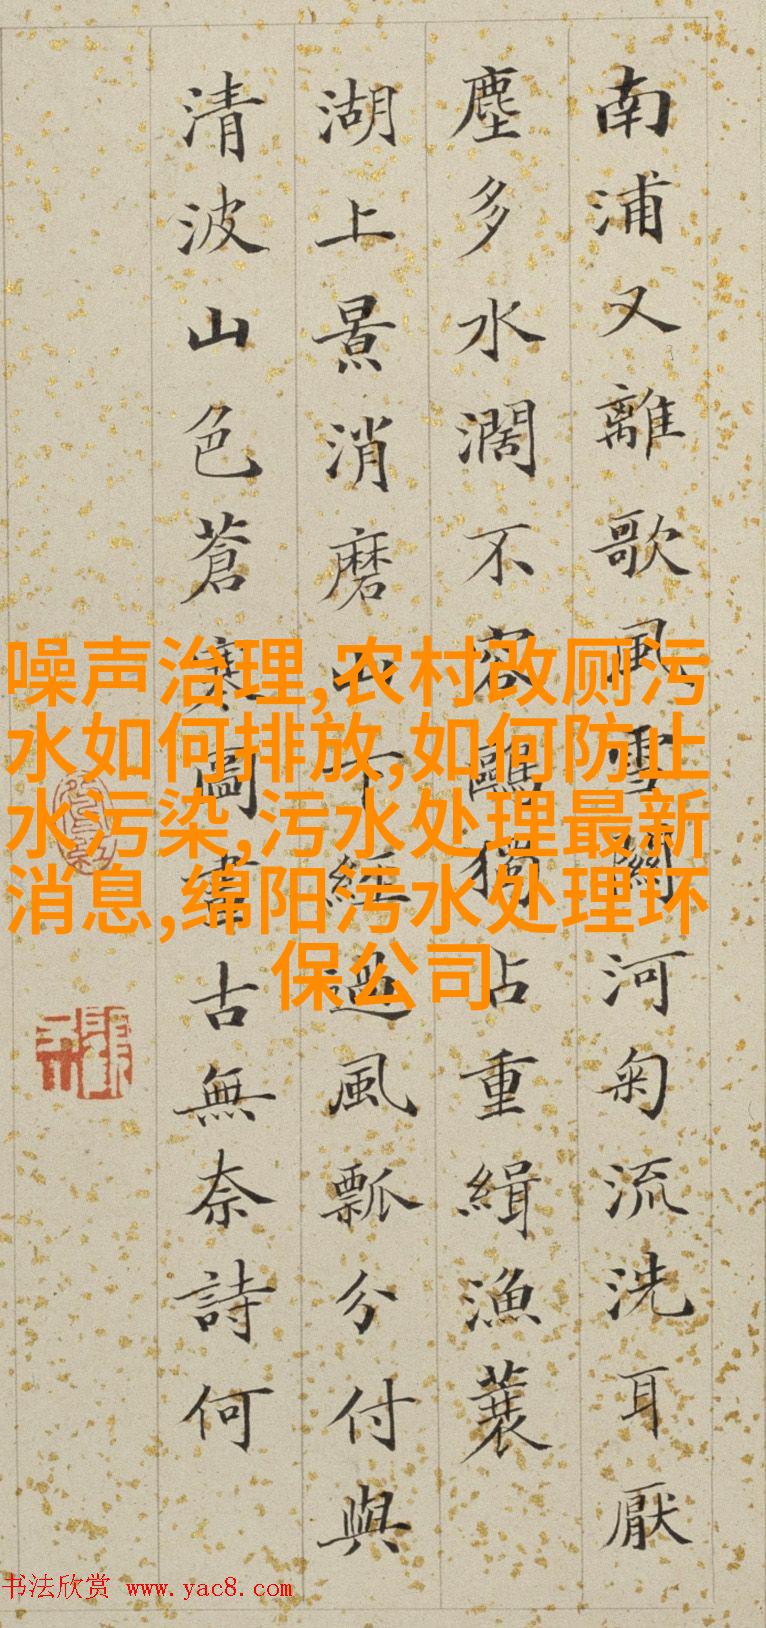 南浦又離歌風雪關河匊流洗耳厭
塵多水濶不容鷗獨占重緝漁蓑
湖上景消磨山下經過風瓢分付與
清波山色蒼寒圖畫古無奈詩何
噪声治理,农村改厕污
水如何排放,如何防止
水污染,污水处理最新
消息,绵阳污水处理环
保公司
书法欣赏 www.yac8.com